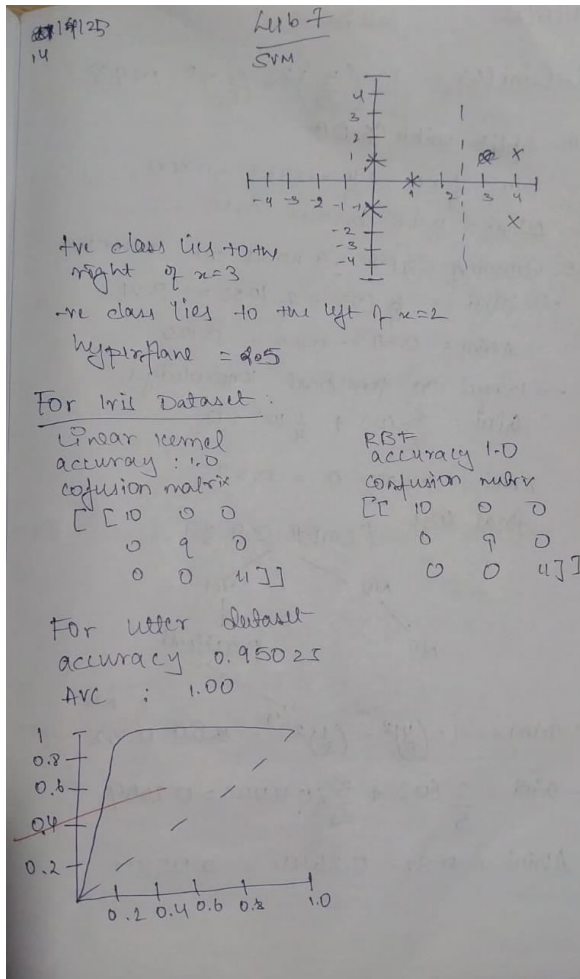 14
Lab 7
SVM
4
3
2
1
-4 -3 -2 -1 -1 1 2 3 4
-2
-3
-4
+ve class lies to the
right of x=3
-ve class lies to the left of x=2
hyperplane = 2.5
For Iris Dataset :
Linear Kernel
accuracy : 1.0
cofusion matrix
[ [ 10 0 0
0 9 0
0 0 11 ] ]
RBF
accuracy 1.0
confusion matrix
[ [ 10 0 0
0 9 0
0 0 11 ] ]
For letter dataset
accuracy 0.95025
AVC : 1.00
1
0.8
0.6
0.4
0.2
0.2 0.4 0.6 0.8 1.0